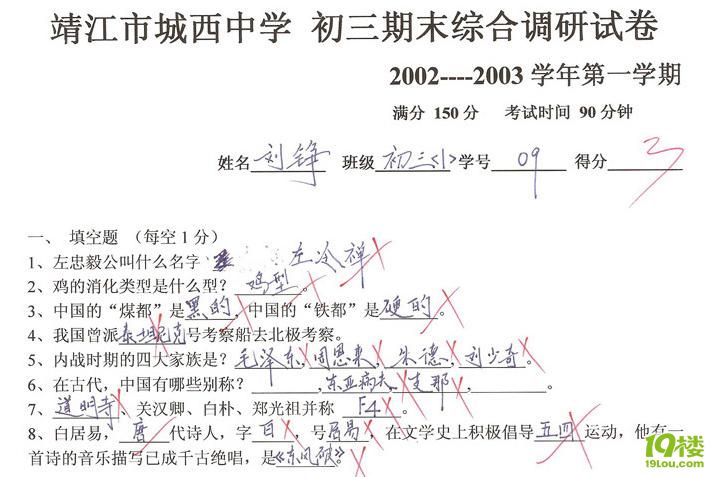 靖江市城西中学 初三期末综合调研试卷
2002----2003 学年第一学期
满分 150 分 考试时间 90 分钟
姓名 刘铮 班级 初三<1> 学号 09 得分 3
一、 填空题 （每空 1 分）
1、左忠毅公叫什么名字 左冷禅
2、鸡的消化类型是什么型？ 鸡型 。
3、中国的“煤都”是黑的，中国的“铁都”是硬的。
4、我国曾派泰坦尼克号考察船去北极考察。
5、内战时期的四大家族是？毛泽东，周恩来，朱德，刘少奇。
6、在古代，中国有哪些别称？______，东亚病夫，支那，______。
7、道明寺、关汉卿、白朴、郑光祖并称 F4 。
8、白居易，唐 代诗人，字 白 ，号居易，在文学史上积极倡导五四运动，他有一
首诗的音乐描写已成千古绝唱，是《东风破》。
19楼
19lou.com